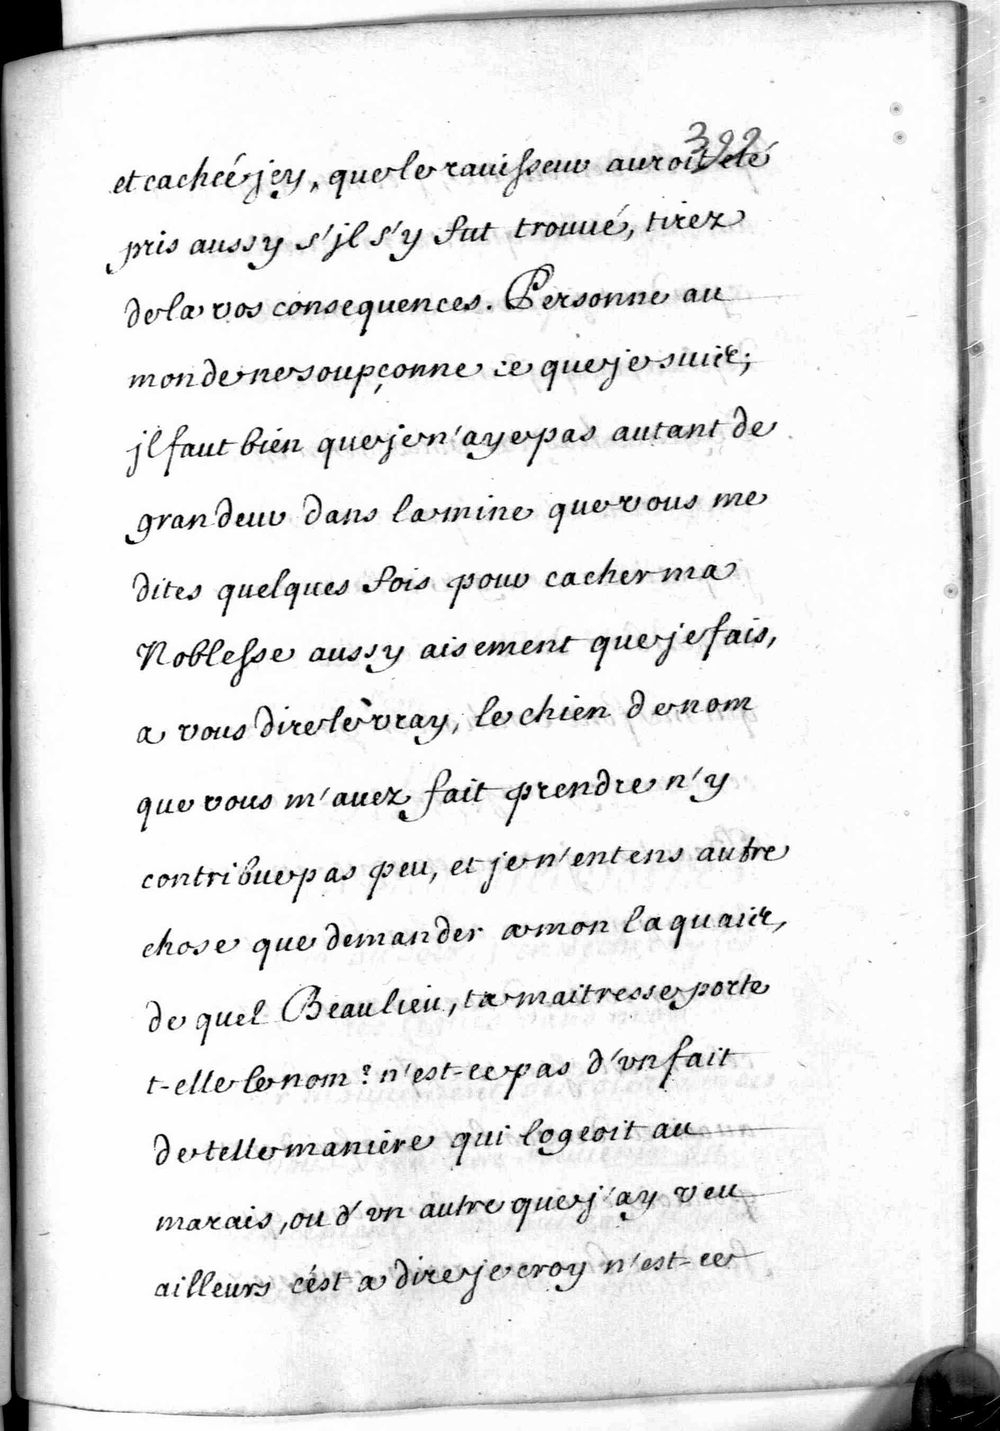 322
et cachée jcy, que le rauisseur auroit eté
pris aussy s'jl s'y fut trouué, tirez
de la vos consequences. Personne au
monde ne soupçonne ce que je suis;
jl faut bien que je n'aye pas autant de
grandeur dans la mine que vous me
dites quelques fois pour cacher ma
Noblesse aussy aisement que je fais,
a vous dire le vray, le chien de nom
que vous m'auez fait prendre n'y
contribue pas peu, et je n'entens autre
chose que demander a mon laquais,
de quel Beaulieu, ta maitresse porte
t-elle le nom? n'est-ce pas d'vn fait
de telle maniere qui logeoit au
marais, ou d'vn autre que j'ay veu
ailleurs c'est a dire je croy n'est-ce